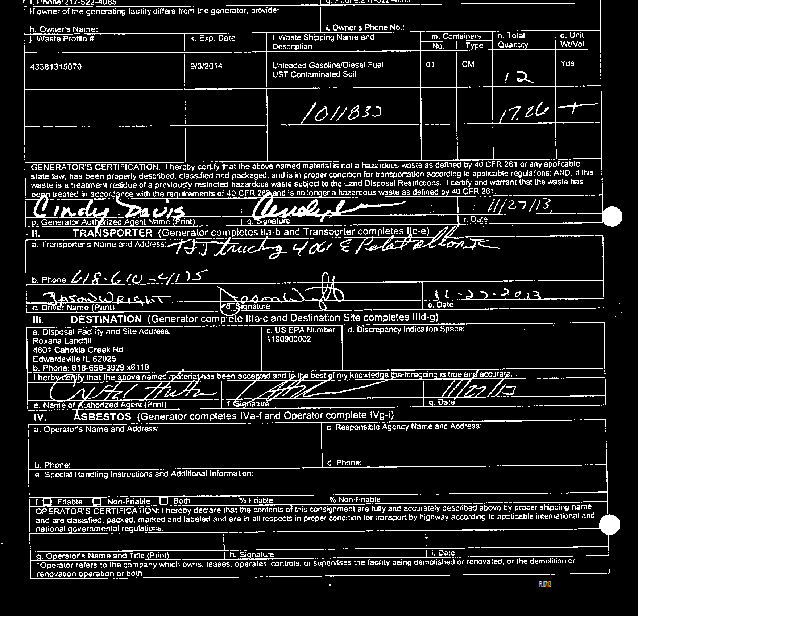 If owner of the generating facility differs from the generator, provide:
h. Owner's Name: i. Owner's Phone No.:
j. Waste Profile # k. Exp. Date l. Waste Shipping Name and Description m. Containers n. Total Quantity o. Unit Wt/Vol
No. Type
43381315070 9/3/2014 Unleaded Gasoline/Diesel Fuel 01 CM 12 Yds
UST Contaminated Soil
1011833 17.26 T
GENERATOR'S CERTIFICATION: I hereby certify that the above named material is not a hazardous waste as defined by 40 CFR 261 or any applicable
state law, has been properly described, classified and packaged, and is in proper condition for transportation according to applicable regulations; AND, if this
waste is a treatment residue of a previously restricted hazardous waste subject to the Land Disposal Restrictions. I certify and warrant that the waste has
been treated in accordance with the requirements of 40 CFR 268 and is no longer a hazardous waste as defined by 40 CFR 261.
Cindy Davis 11/27/13
p. Generator Authorized Agent Name (Print) q. Signature r. Date
II. TRANSPORTER (Generator completes IIa-b and Transporter completes IIc-e)
a. Transporter's Name and Address:
b. Phone: 618-610-4175
Jason Wright 11-27-2013
c. Driver Name (Print) d. Signature e. Date
III. DESTINATION (Generator complete IIIa-c and Destination Site completes IIId-g)
a. Disposal Facility and Site Address: c. US EPA Number d. Discrepancy Indication Space:
Roxana Landfill 1190900002
4601 Cahokia Creek Rd
Edwardsville IL 62025
b. Phone: 618-656-3029 x6118
I hereby certify that the above named material has been accepted and to the best of my knowledge the foregoing is true and accurate.
11/27/13
e. Name of Authorized Agent (Print) f. Signature g. Date
IV. ASBESTOS (Generator completes IVa-f and Operator complete IVg-i)
a. Operator's Name and Address: c. Responsible Agency Name and Address:
b. Phone: d. Phone:
e. Special Handling Instructions and Additional Information:
f. Friable Non-Friable Both % Friable % Non-Friable
OPERATOR'S CERTIFICATION: I hereby declare that the contents of this consignment are fully and accurately described above by proper shipping name
and are classified, packed, marked and labeled and are in all respects in proper condition for transport by highway according to applicable international and
national governmental regulations.
g. Operator's Name and Title (Print) h. Signature i. Date
*Operator refers to the company which owns, leases, operates, controls, or supervises the facility being demolished or renovated, or the demolition or
renovation operation or both